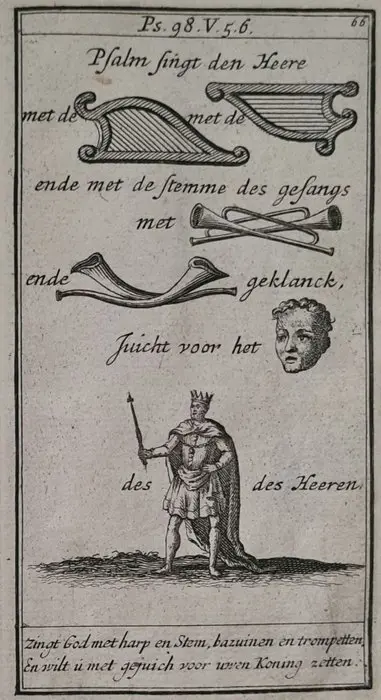 Ps. 98. V. 5. 6.
66
Psalm singt den Heere
met de met de
ende met de stemme des gesangs
met
ende geklanck,
Juicht voor het
des des Heeren.
Zingt God met harp en Stem, bazuinen en trompetten,
En wilt ú met gejuich voor uwen Koning zetten.